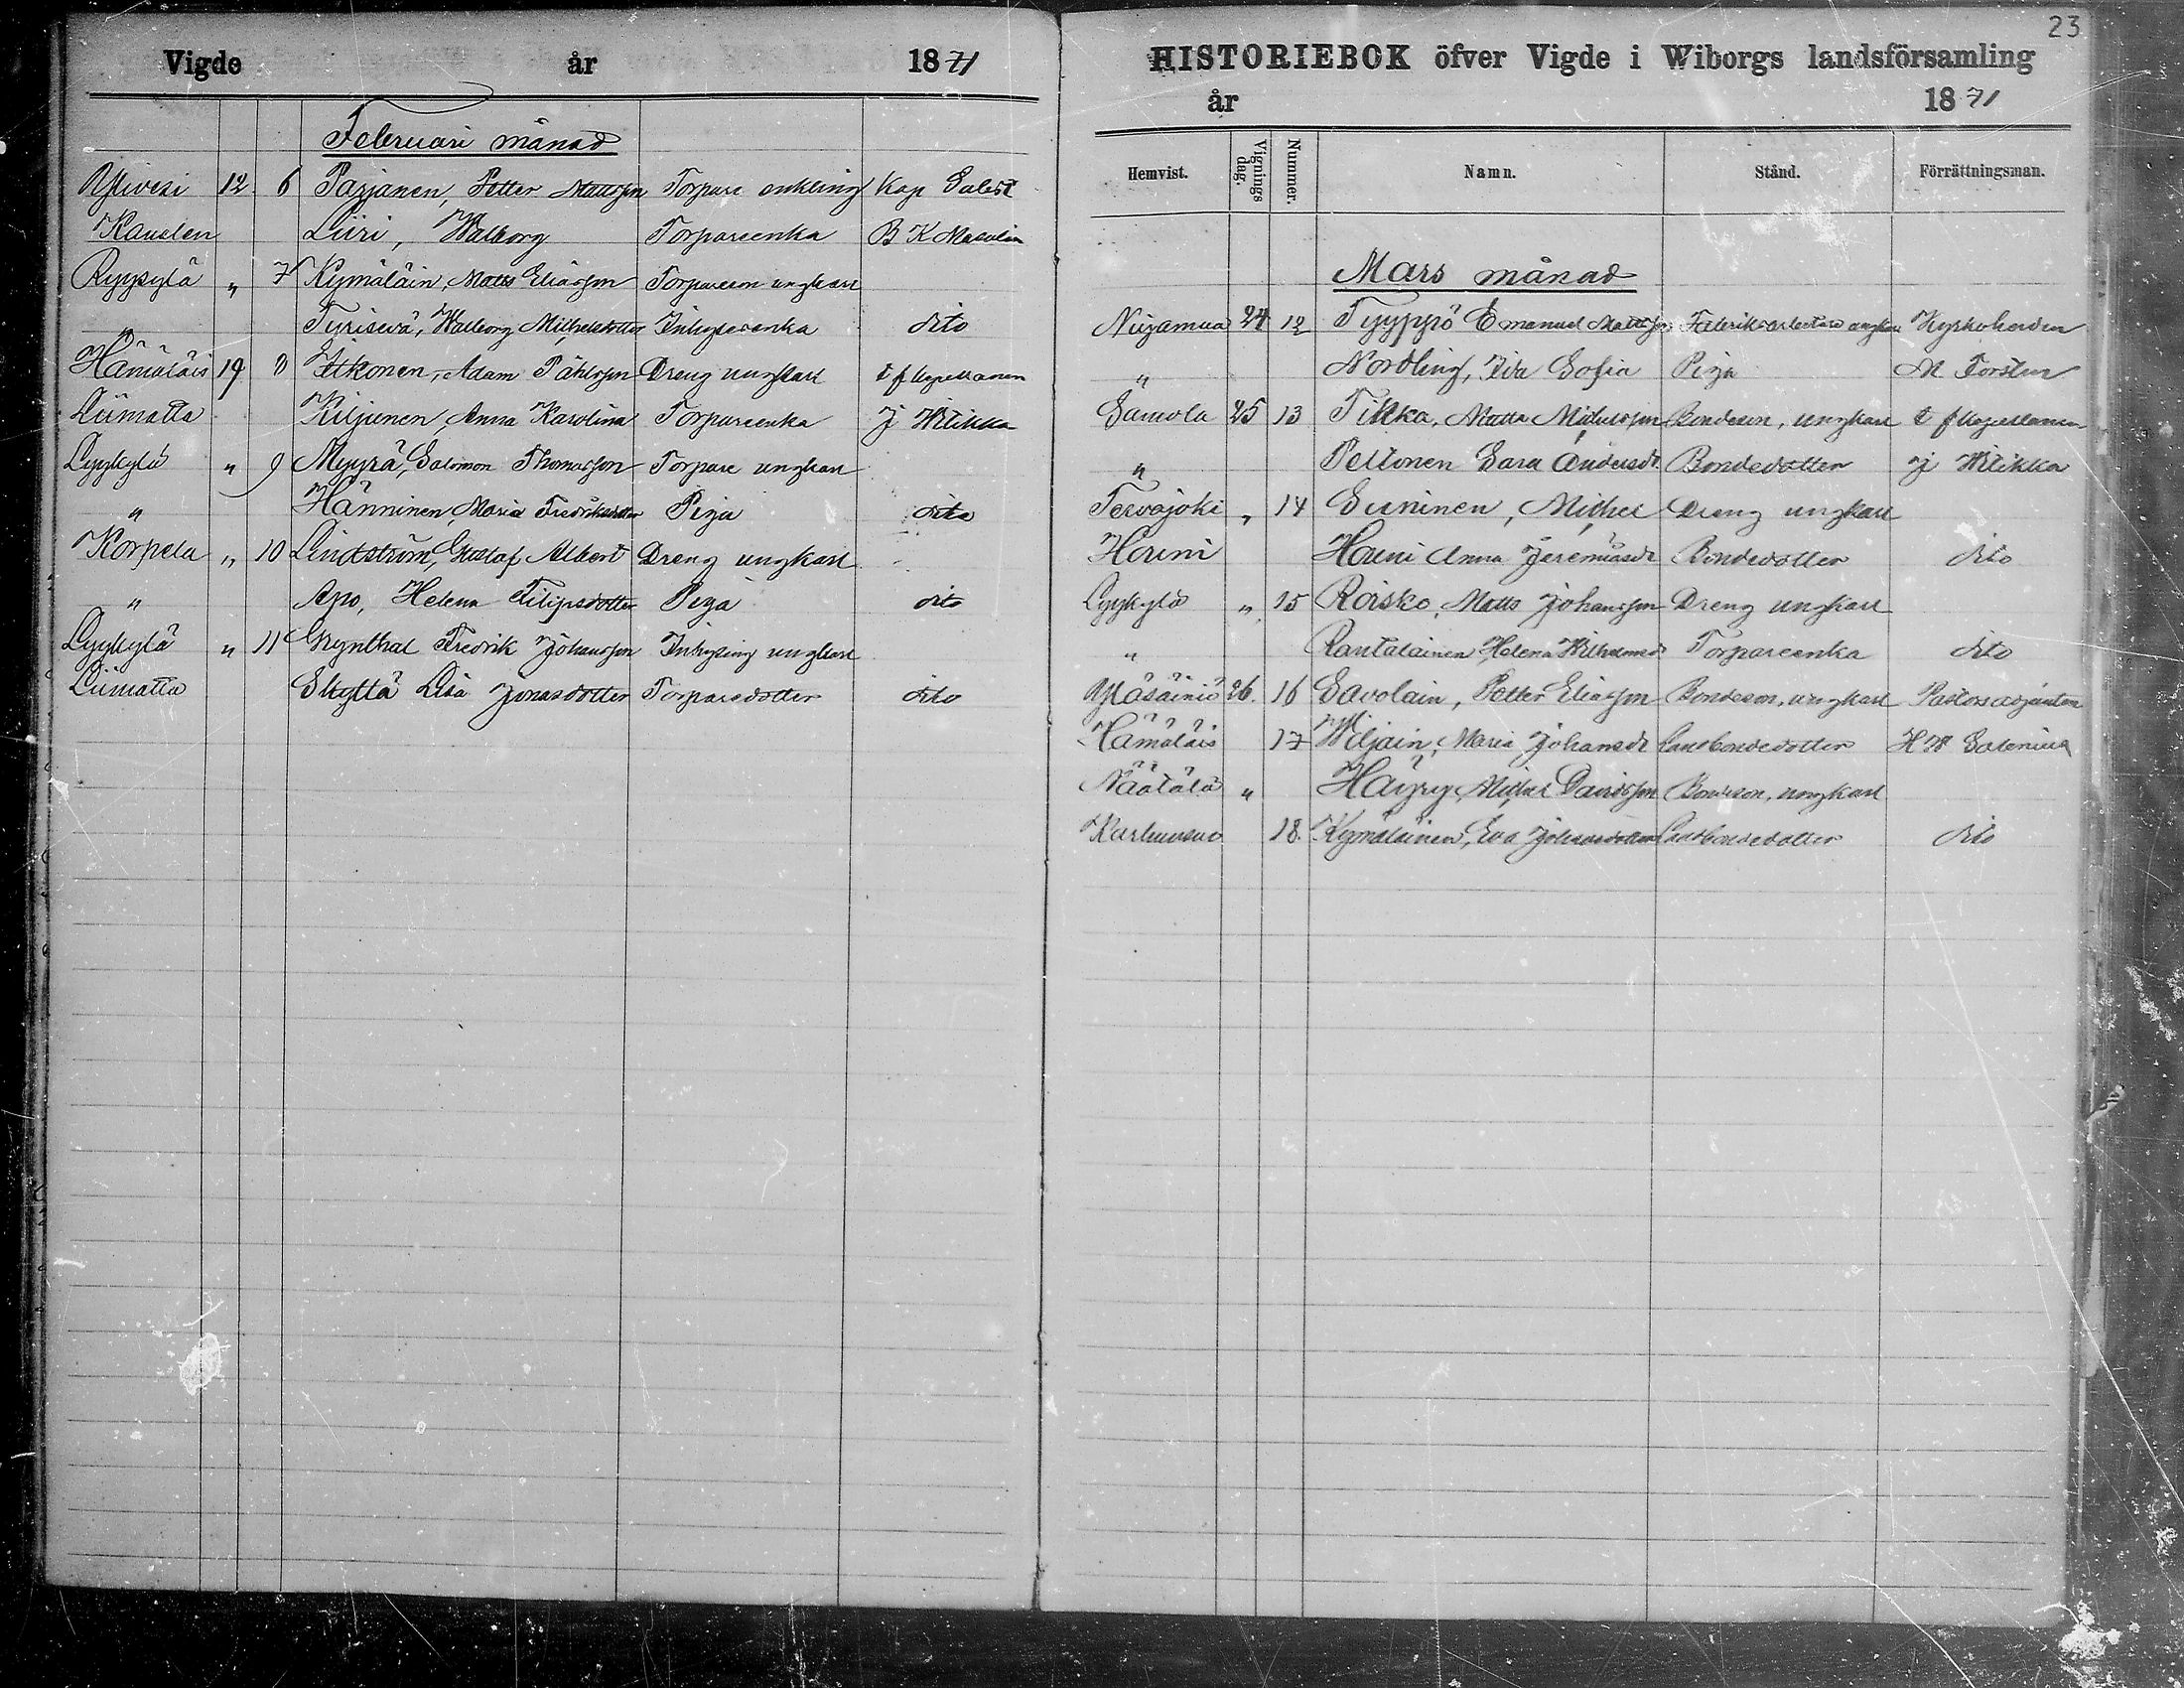 Vigde år 1871
Februari månad
Ylivesi 12. 6 Parjanen, Petter Mattsson Torpare enkling Kap Subst
Kauslen Liiri, Walborg Torpareenka B K Masalin
Ryypylä " 7 Kymäläin, Matts Eliasson Torpareson ungkarl
" Tyrisevä, Walborg Michelsdotter Inhyseenka dito
Hämäläis 19 8 Itkonen, Adam Påhlsson Dreng ungkarl t f kapellanen
Liimatta Kiljunen, Anna Karolina Torpareenka J Wilikka
Lyykylä " 9 Myyrä, Salomon Thomasson Torpare ungkarl
" Hänninen, Maria Fredriksdotter Piga dito
Korpela " 10 Lindström, Gustaf Albert Dreng ungkarl
" Apo, Helena Filipsdotter Piga dito
Lyykylä " 11 Grynthal Fredrik Johansson Inhysing ungkarl
Liimatta Skyttä Lisa Jonasdotter Torparedotter dito
23
HISTORIEBOK öfver Vigde i Wiborgs landsförsamling
år 1871
Hemvist. Vignings dag. Nummer. Namn. Stånd. Förrättningsman.
Mars månad
Nuijamaa 24 12 Tyyppö Emanuel Mattsson Fabriksarbetare ungkarl Kyrkoherden
" Nordling, Ida Sofia Piga M Forstén
Samola 25 13 Tikka, Matts Michelsson Bondeson, ungkarl t f kapellanen
" Peltonen Sara Andersdr. Bondedotter J Wilikka
Tervajoki " 14 Suninen, Michel Dreng ungkarl
Houni Houni Anna Jeremiasdr Bondedotter dito
Lyykylä " 15 Roisko, Matts Johansson Dreng ungkarl
" Rantalainen, Helena Wilhelmsdr Torpareenka dito
Yläsäiniö 26. 16 Savolain, Petter Eliasson Bondeson, ungkarl Pastorsadjunkten
Hämäläis 17 Wiljain, Maria Johansdr Landbondedotter H W Salenius
Näätälä " Häyry, Michel Davidsson Bondeson, ungkarl
Karhusuo 18. Kymäläinen, Eva Johansdotter Landbondedotter dito